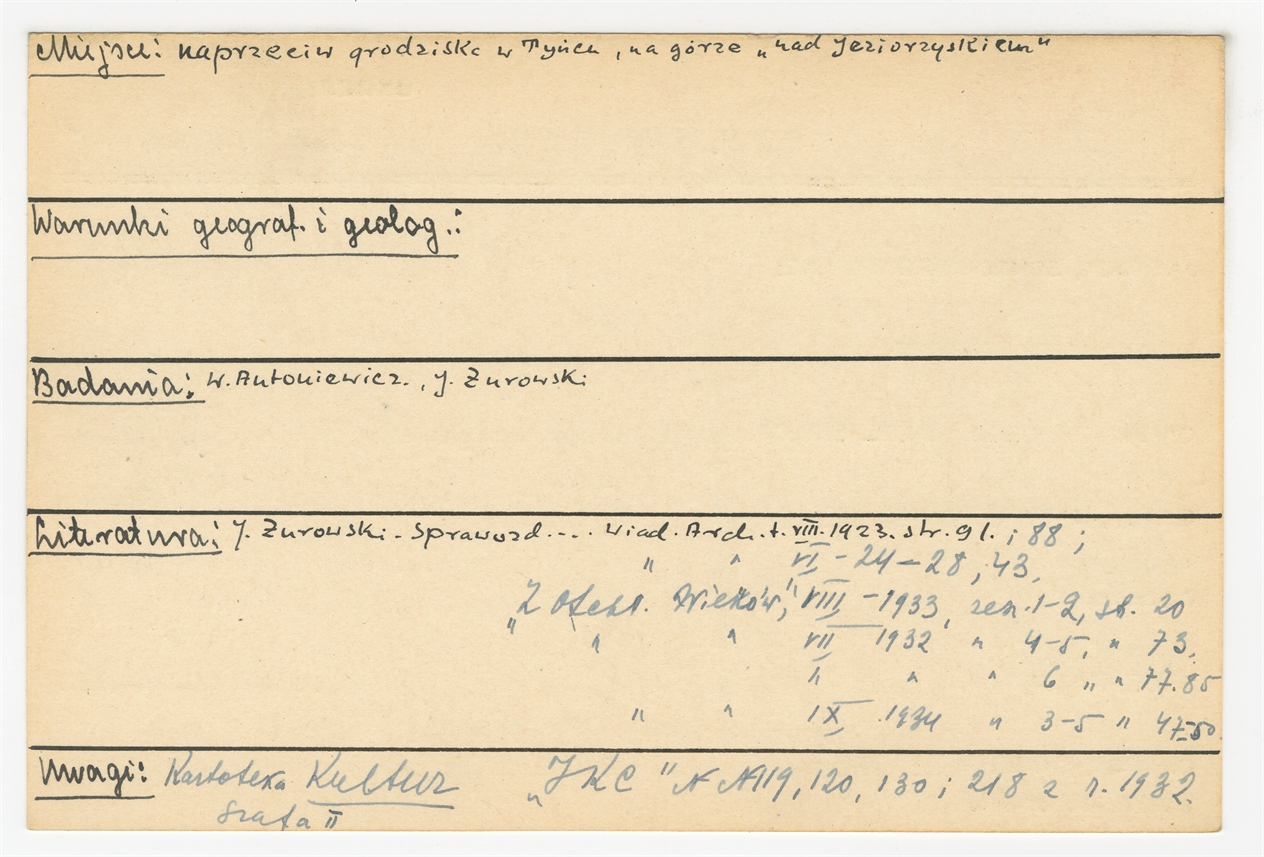 Miejsce: naprzeciw grodziska w Tyńcu, na górze „nad Jeziorzyskiem"
Warunki geograf. i geolog.:
Badania: W. Antoniewicz., J. Żurowski
Literatura: J. Żurowski - Sprawozd.... Wiad. Arch. t. VIII. 1923. str. 91. i 88;
" " VI - 24-28, 43,
„Z Otchł. Wieków", VIII - 1933, zesz. 1-2, st. 20
" " VII 1932 " 4-5, " 73,
" " " 6 " " 77.85
" " IX, 1934 " 3-5 " 47-50.
Uwagi: Kartoteka Kultur „JKC" NN 119, 120, 130 i 218 z r. 1932.
Szafa II